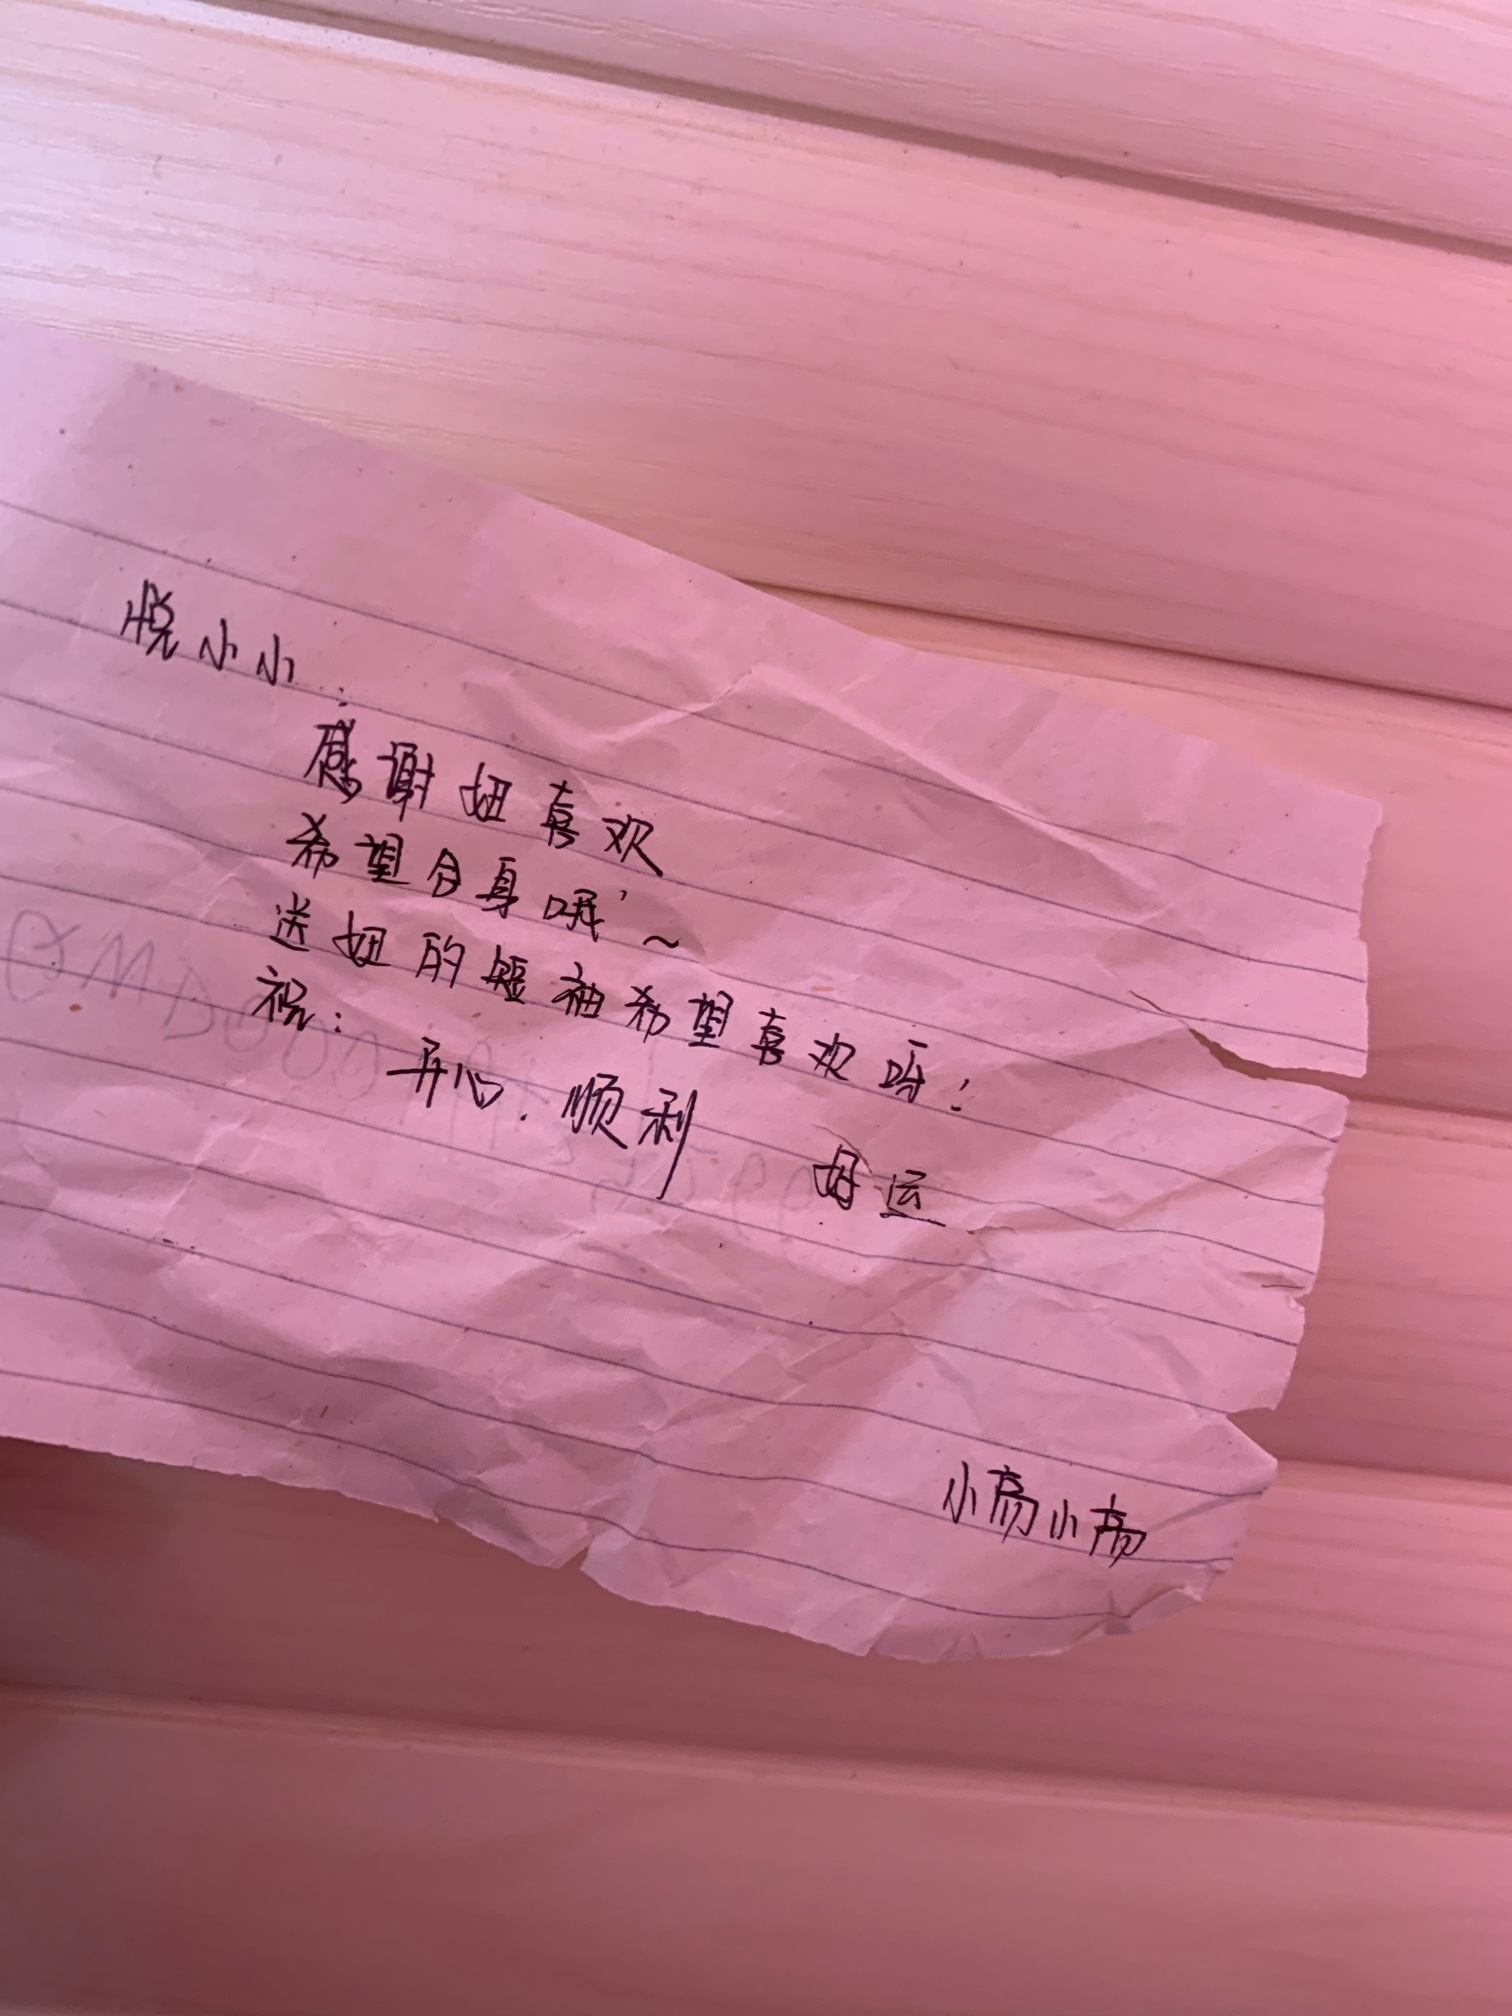 悦小小:
感谢妞喜欢
希望合身哦~
送妞的短袖希望喜欢呀!
祝:
开心.顺利 好运
小高小高